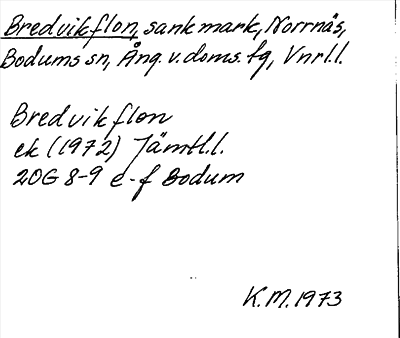 Bredvikflon, sank mark, Norrnäs,
Bodums sn, Ång. v. doms. tg, Vnrl.l.
Bredvikflon
ek (1972) Jämtl.l.
20G 8-9 e-f Bodum
K.M. 1973